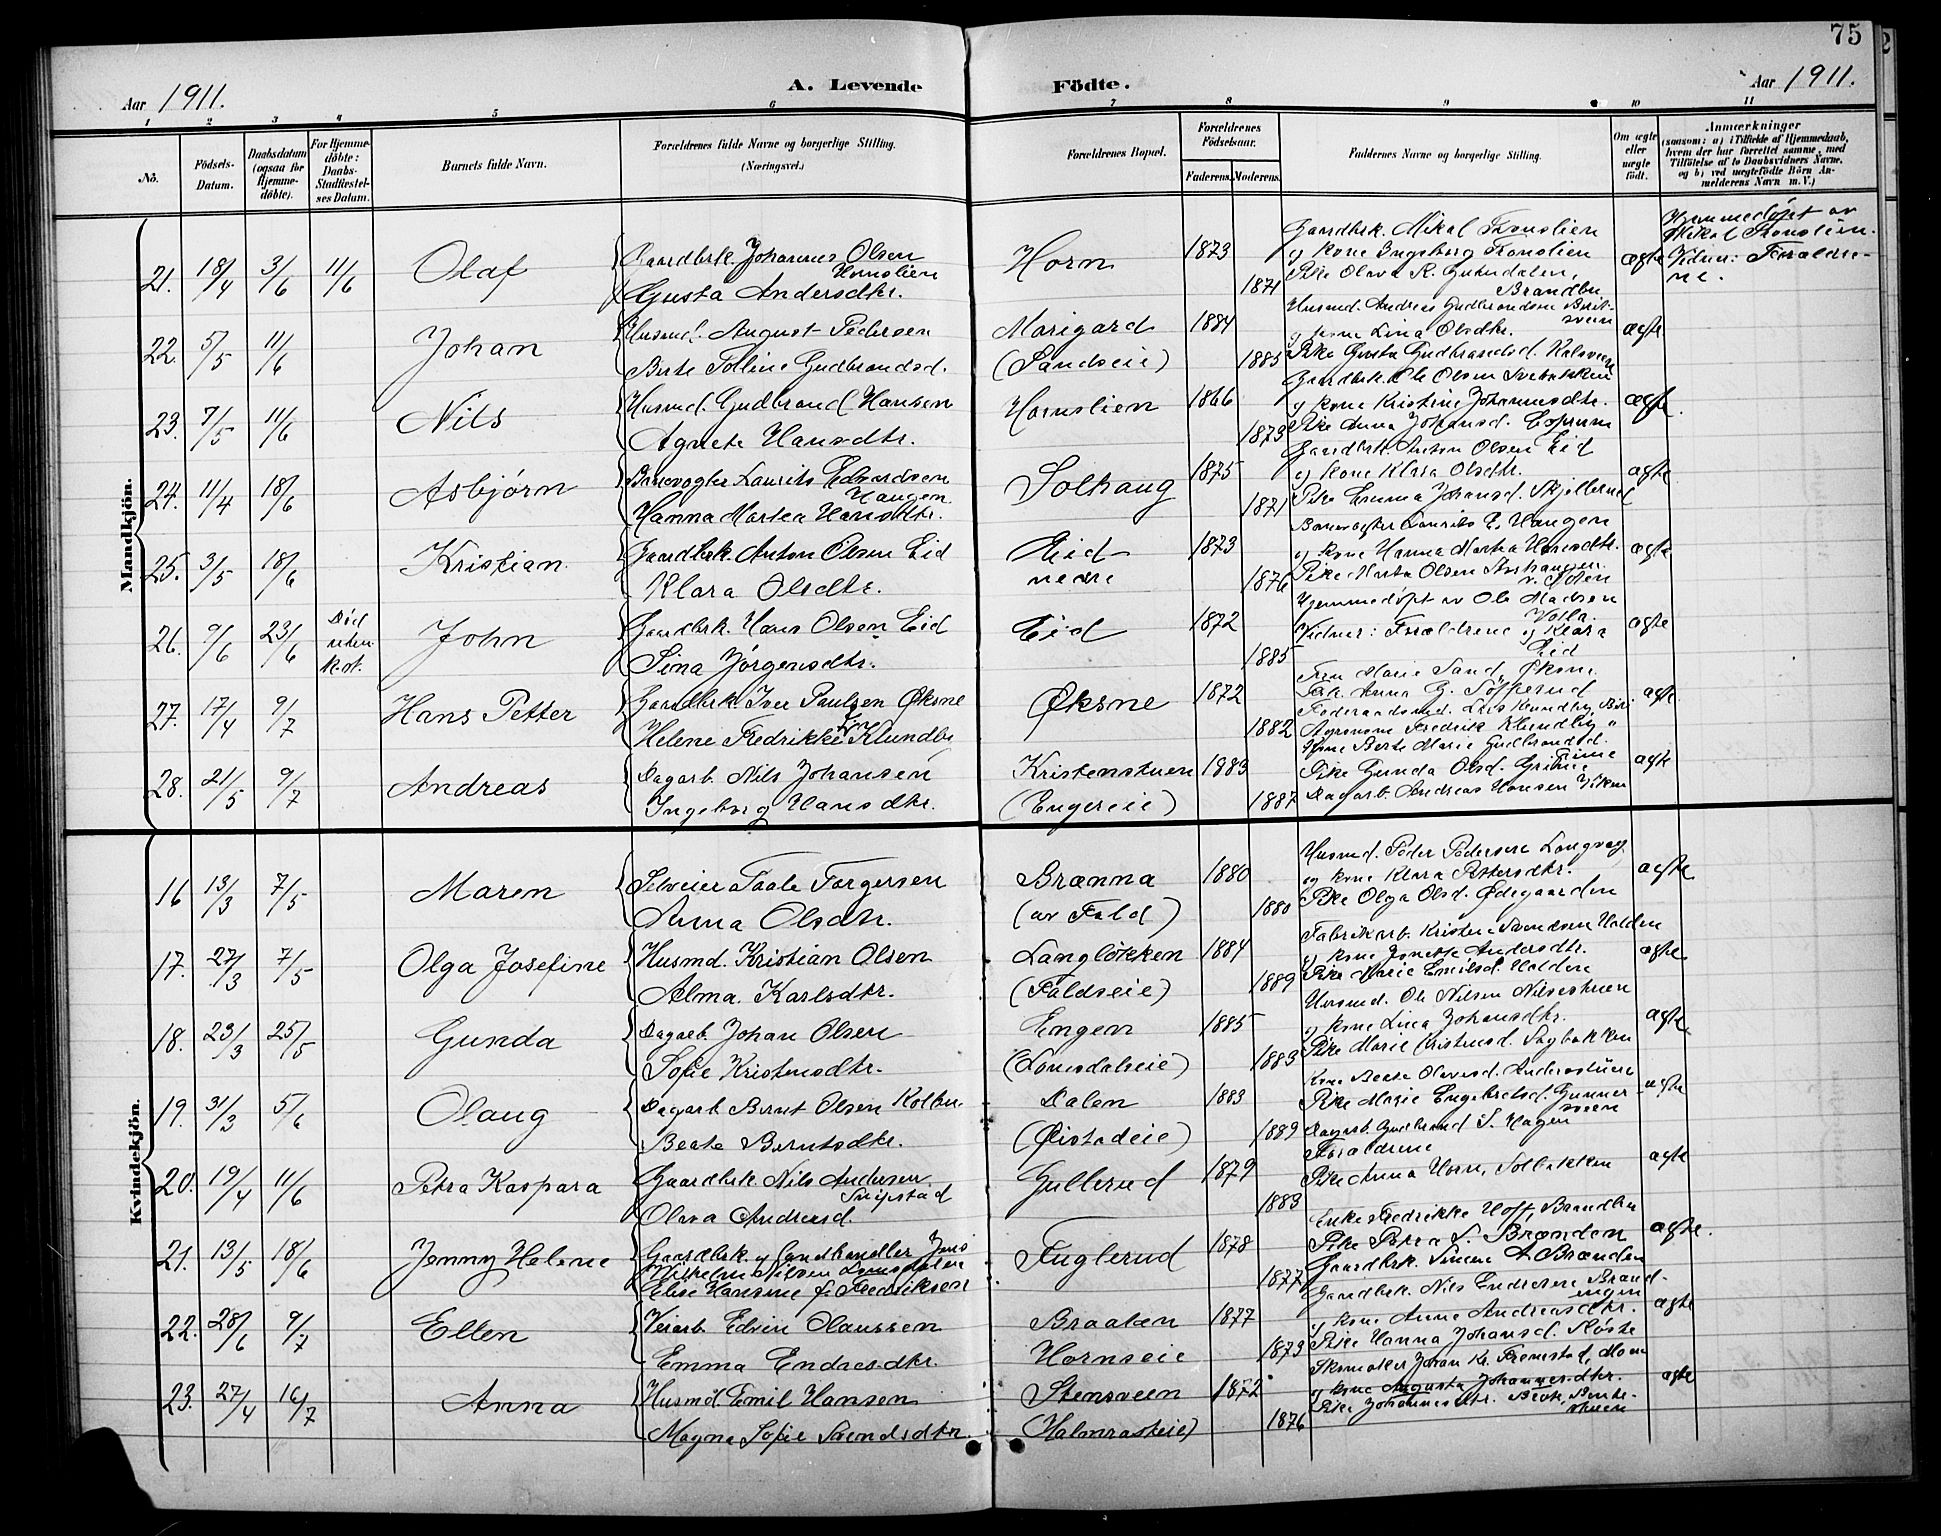 75
Aar 1911.
A. Levende Födte.
Aar 1911.
1 2 3 4 5 6 7 8 9 10 11
No.
Födsels-Datum.
Daabsdatum (ogsaa for Hjemme-döbte).
For Hjemme-döbte: Daabs-Stadfæstel-ses Datum.
Barnets fulde Navn.
Forældrenes fulde Navne og borgerlige Stilling.
(Næringsvei.)
Forældrenes Bopæl.
Forældrenes Födselsaar.
Faderens. Moderens.
Faddernes Navne og borgerlige Stilling.
Om ægte eller uægte födt.
Anmærkninger
(saasom: a) i Tilfælde af Hjemmedaab, hvem der har forrettet samme, med Tilföielse af to Daabsvidners Navne, og b) ved uægtefödte Börn Anmelderens Navn m. V.)
Mandkjön.
21. 18/4 3/6 11/6 Olaf
Gaardbrk. Johannes Olsen Hornslien
Gusta Andersdtr.
Horn 1873 1871
Gaardbrk. Mikal
og kone Ingeborg
Pike Olava K.
Brandbu
ægte
Hjemmedøpt av
Mikal
Vidner: Forældre-
ne.
22. 5/5 11/6 Johan
Husmd. August Pedersen
Berte Polline Gudbrandsd.
Morigard
(Sandseie)
1884 1885
Husmd. Andreas Gudbrandsen
og kone Lina Olsdtr.
Pike Gusta Gudbrandsd.
ægte
23. 7/5 11/6 Nils
Husmd. Gudbrand Hansen
Agnete Hansdtr.
Hornslien 1866 1873
Gaardbrk. Ole Olsen
og kone Kristine Johannesdtr.
Pike Anna Johansd.
ægte.
24. 11/4 18/6 Asbjørn
Banevogter Laurits Edvardsen
Haugen
Hanna Martea Hansdtr.
Solhaug 1875 1871
Gaardbrk. Anton Olsen Eid
og kone Klara Olsdtr.
Pike Emma Johansd.
ægte
25. 3/5 18/6 Kristian
Gaardbrk. Anton Olsen Eid
Klara Olsdtr.
Eid
nedre
1873 1876
Banevogter Laurits E. Haugen
og kone Hanna Martea Hansdtr.
Pike Marta Olsen
ægte
26. 9/6 23/6 Død uten
John
Gaardbrk. Hans Olsen Eid
Sina Jörgensdtr.
Eid 1872 1885
Hjemmedøpt av Ole Madsen
Volla.
Vidner: Forældrene og Klara
Eid
ægte
27. 17/4 9/7 Hans Petter
Gaardbrk. Iver Paulsen Øksne
Helene Fredrikke Klundby
Øksne 1872 1882
Marie Sand, Øksne
Anna G.
Føderaadsmd. Lars Klundby, Biri
Agronom Fredrik Klundby "
ægte
28. 21/5 9/7 Andreas
Dagarb. Nils Johansen
Ingeborg Hansdtr.
Kristenstuen
(Engereie)
1883 1887
Kone Berte Marie Gudbrandsd.
Pike Gunda Olsd. Grime
Dagarb. Andreas Hansen Viken
ægte
Kvindekjön.
16 13/3 7/5 Maren
Selveier Paale Torgersen
Anna Olsdtr.
Brænna
(av Fald)
1880 1880
Husmd. Peder Pedersen
og kone Klara Pettersdtr.
Pike Olga Olsd. Ødegaarden
ægte
17. 27/3 7/5 Olga Josefine
Husmd. Kristian Olsen
Alma Karlsdtr.
Langløkken
(Faldseie)
1884 1889
Fabrikarb. Kristen Svendsen Halden
og kone Jonette Andersdtr.
Pike Marie Emilsd. Halden
ægte.
18. 23/3 25/5 Gunda
Dagarb. Johan Olsen
Sofie Kristensdtr.
Engen
(Lonsdalseie)
1885 1883
Husmd. Ole Nilsen Nilsestuen
og kone Lina Johansdtr.
Pike Marie Kristensd. Sagbakken
ægte
19. 31/3 5/6 Olaug
Dagarb. Bernt Olsen Kolbu.
Beate Berntsdtr.
Dalen
(Øistadeie)
1883 1889
Kone Beate Olavesd. Andersstuen
Pike Marie Engebretsd. Gunner-
sveen
Dagarb. Gudbrand S. Hagen
ægte
20. 19/4 11/6 Petra Kaspara
Gaardbrk. Nils Andersen
Olava Andersd.
Gullerud 1879 1883
Forældrene
Pike Anna Horn, Solbakken
ægte
21. 13/5 18/6 Jenny Helene
Gaardbrk. og landhandler Jens
Wilhelm Nilsen Lonsdalen
Elise Hansine f. Fredriksen
Fuglerud 1878 1877
Enke Fredrikke Hoff, Brandbu
Pike Petra S. Brænden
Gaardbrk. Simen A. Brænden
ægte.
22. 28/6 9/7 Ellen
Veiarb. Edvin Olaussen
Emma Endresdtr.
Braaten
Hornseie
1877 1873
Gaardbrk. Nils Endresen Brand-
engen
og kone Anne Andreasdtr.
Pike Hanna Johansd.
ægte
23. 27/4 16/7 Anna
Husmd. Emil Hansen
Magna Sofie Svendsdtr.
Stensveen
(Halmrasteie)
1872 1876
Skomaker Johan Kr.
og kone Augusta Johannesdtr.
Pike
ægte